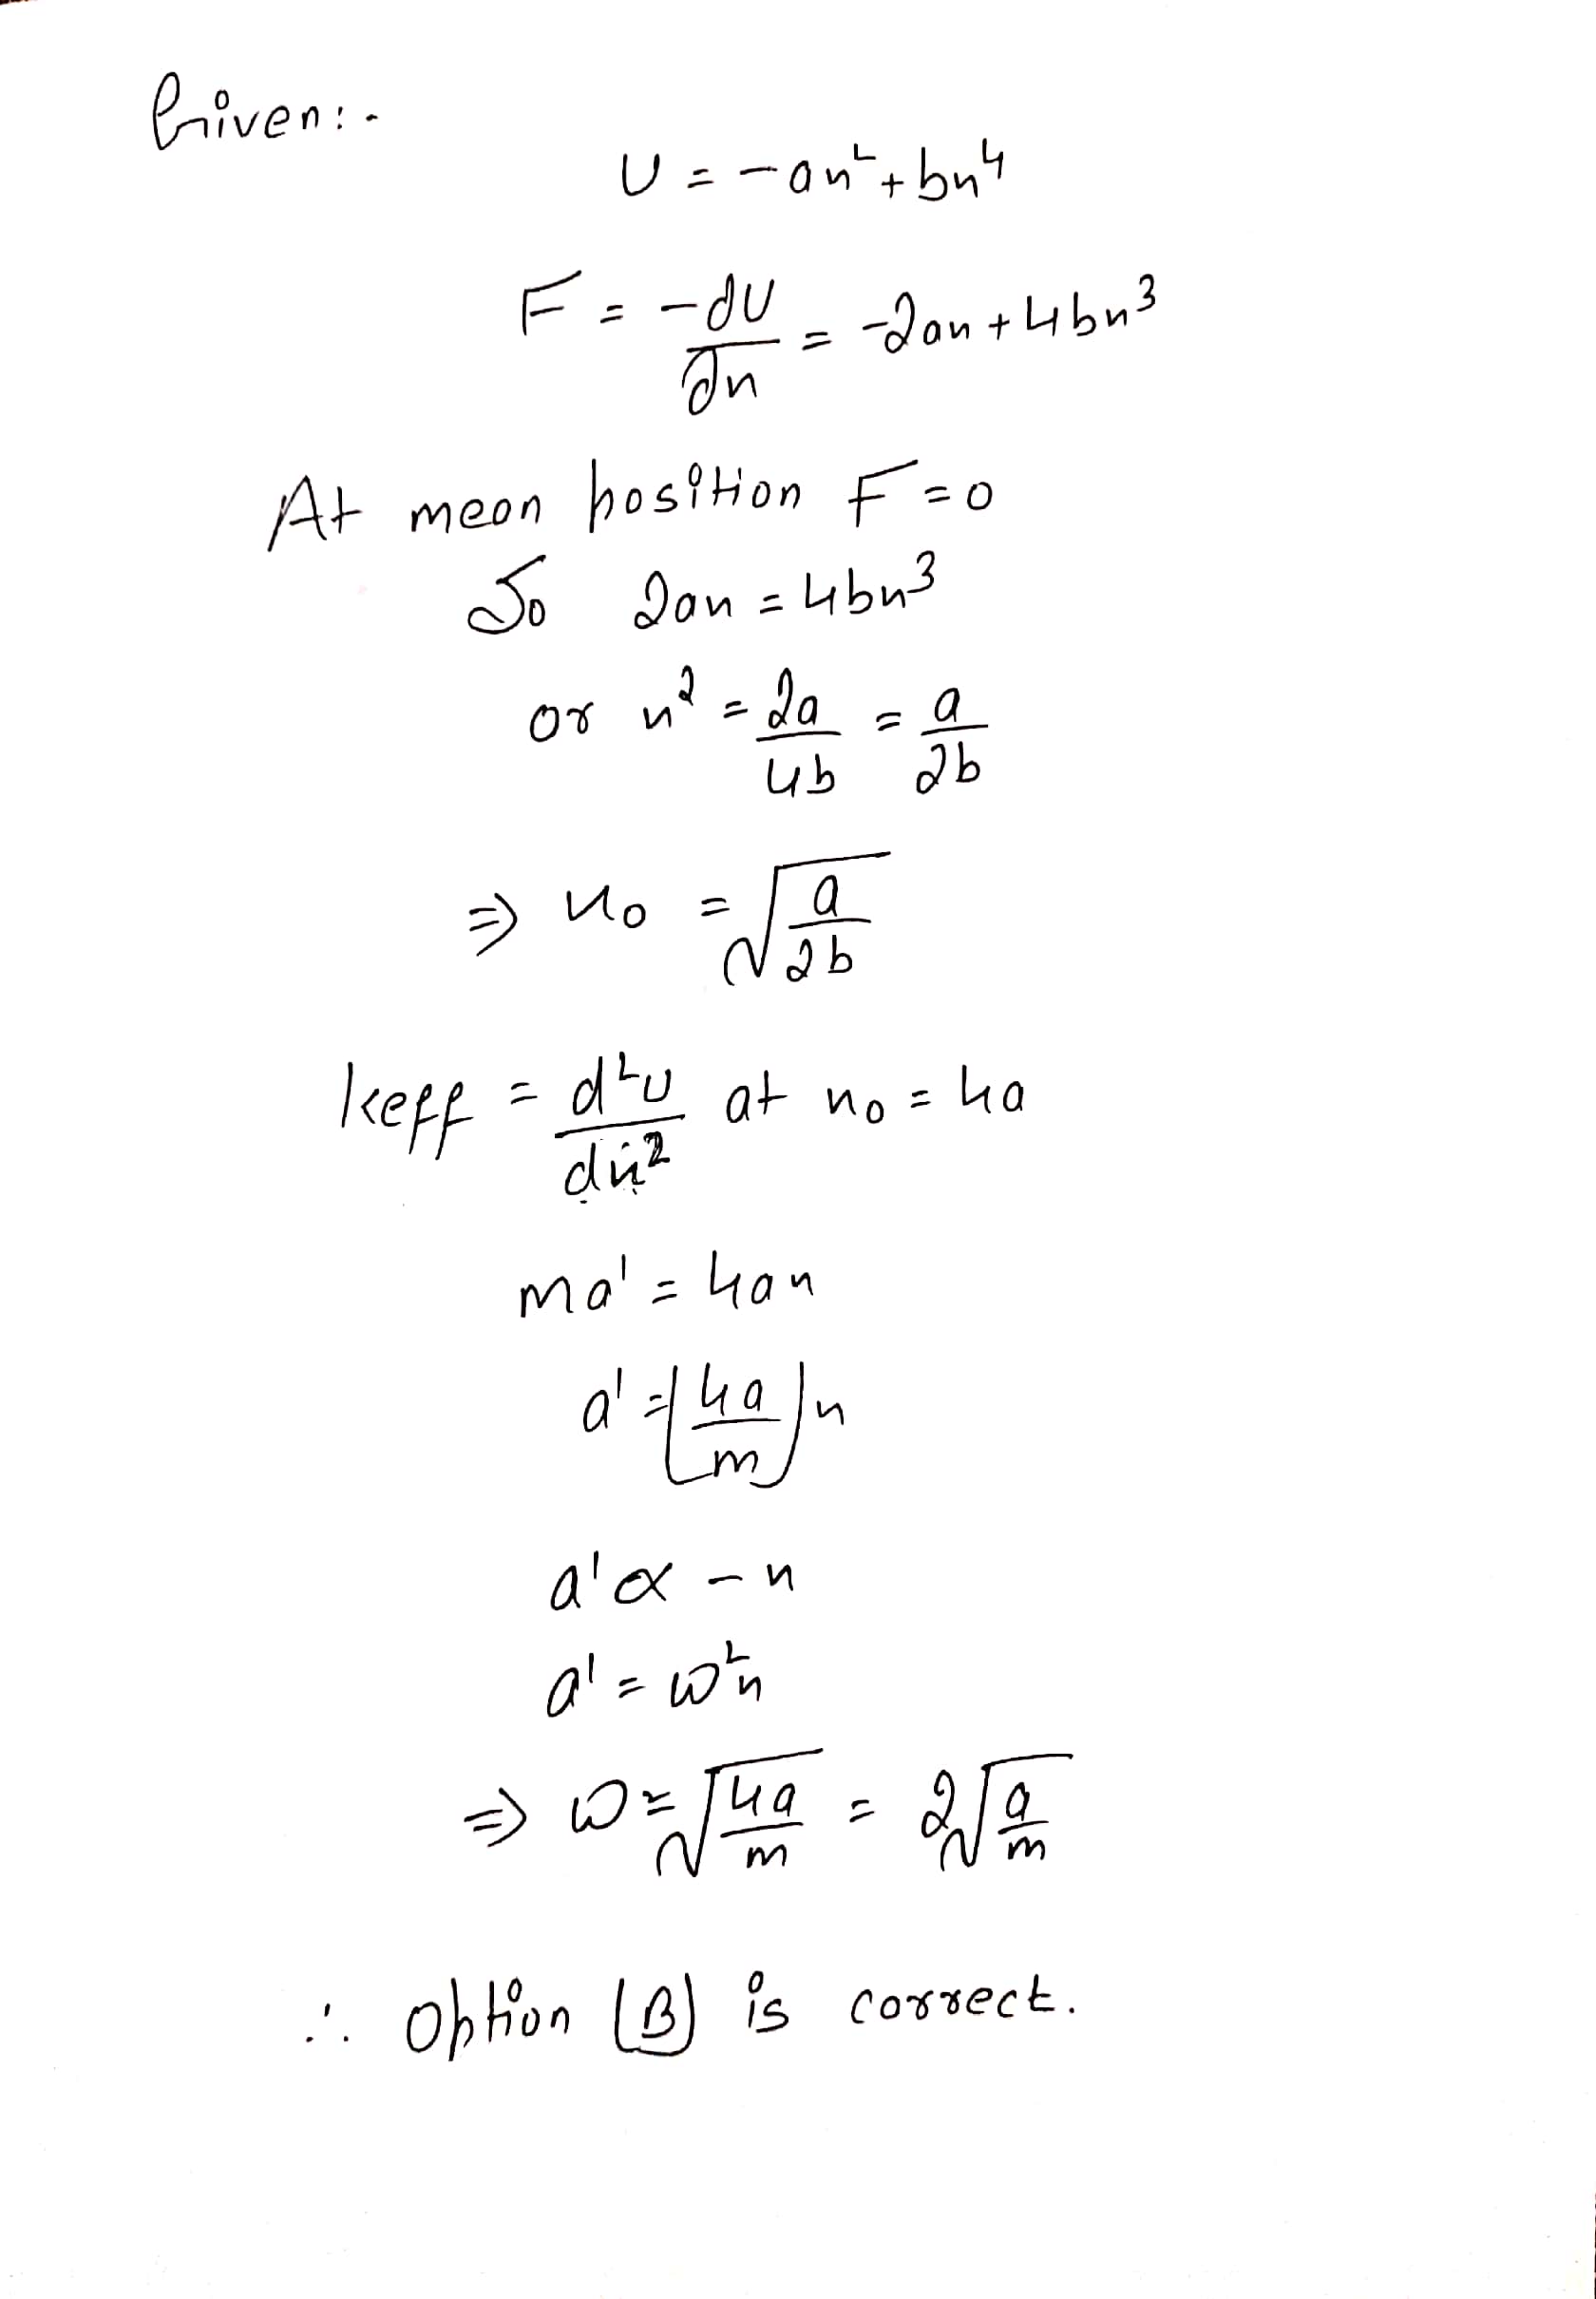 Given:-
U = -ax² + bx⁴
F = -dU/dx = -2ax + 4bx³
At mean position F = 0
So 2ax = 4bx³
or x² = 2a/4b = a/2b
⇒ x₀ = √(a/2b)
keff = d²U/dx² at x₀ = 4a
ma' = 4ax
a' = (4a/m)x
a' ∝ -x
a' = ω²x
⇒ ω = √(4a/m) = 2√(a/m)
∴ Option (B) is correct.